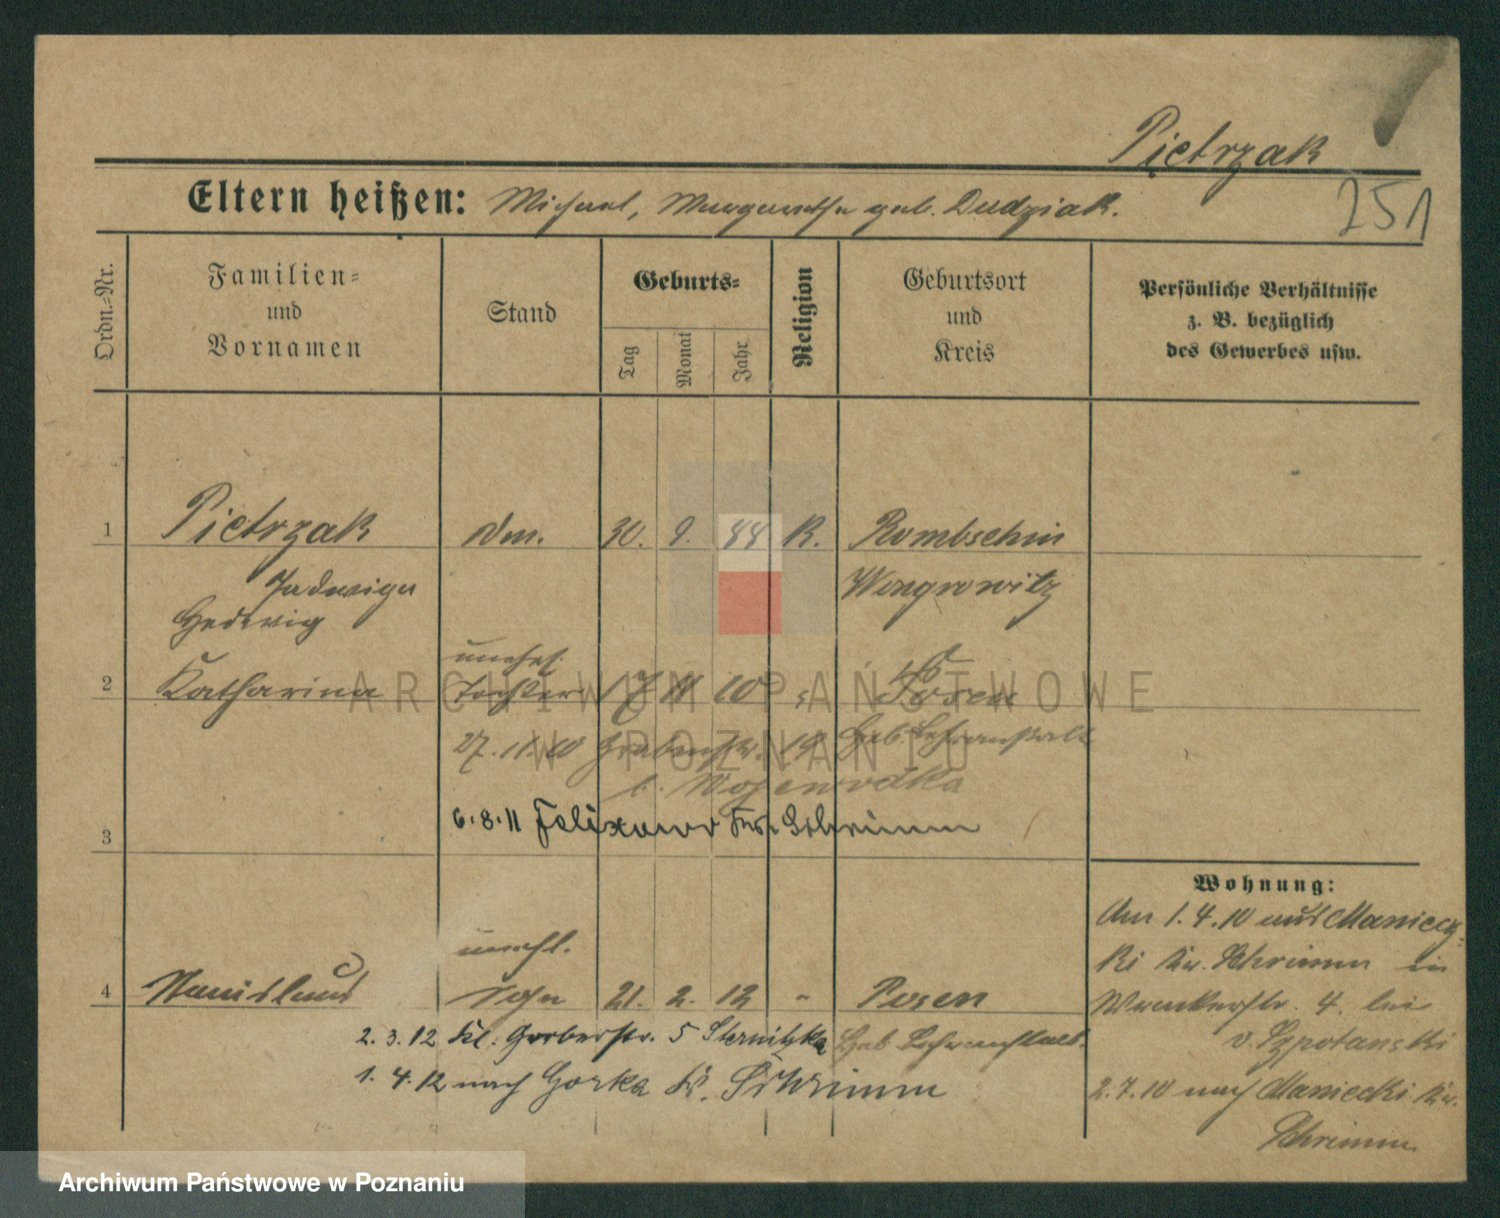 Pietrzak
251
Eltern heißen: Michael, Margarethe geb. Dudziak.
Ordn.-Nr.
Familien- und Vornamen
Stand
Geburts-
Tag
Monat
Jahr
Religion
Geburtsort und Kreis
Persönliche Verhältnisse z. B. bezüglich des Gewerbes usw.
1 Pietrzak 30. 9. 88 K. Rombschin
Jadwiga Wongrowitz
Hedwig
unehel.
2 Katharina Tochter 17 11 10 " Posen
27.11.10 Grabenstr. Heb. Lehranstalt
b. Wojewodka
6.8.11 Felixowo Krs. Schrimm
3
unehl.
4 Stanislaus Sohn 21. 2. 12 " Posen
2.3.12 Kl. Gerberstr. 5 Sternitzka Heb. Lehranstalt.
1.4.12 nach Gorka Kr. Schrimm
Wohnung:
Am 1.4.10 aus Maniecz-
ki Kr. Schrimm in
Wronkerstr. 4. bei
v. Szpotanski
2.7.10 nach Maniecki Kr.
Schrimm.
ARCHIWUM PAŃSTWOWE
W POZNANIU
Archiwum Państwowe w Poznaniu